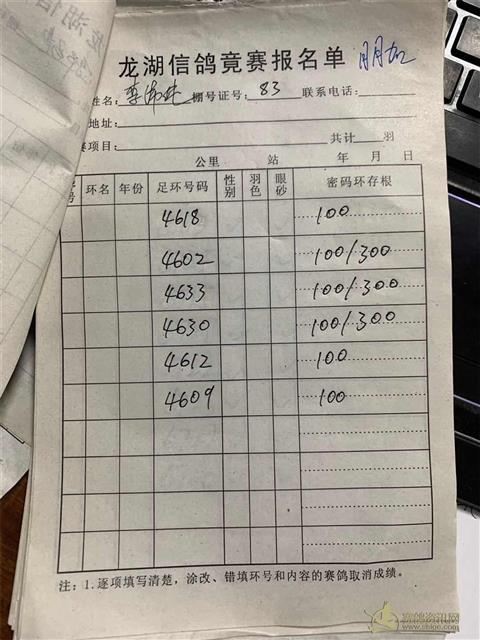 龙湖信鸽竞赛报名单
姓名: 棚号证号: 83 联系电话:
地址:
赛项目: 共计 羽
公里 站 年 月 日
号 环名 年份 足环号码 性别 羽色 眼砂 密码环存根
4618 100
4602 100/300
4633 100/300
4630 100/300
4612 100
4609 100
注: 1.逐项填写清楚，涂改、错填环号和内容的赛鸽取消成绩。
赛鸽资讯网
www.shige.com